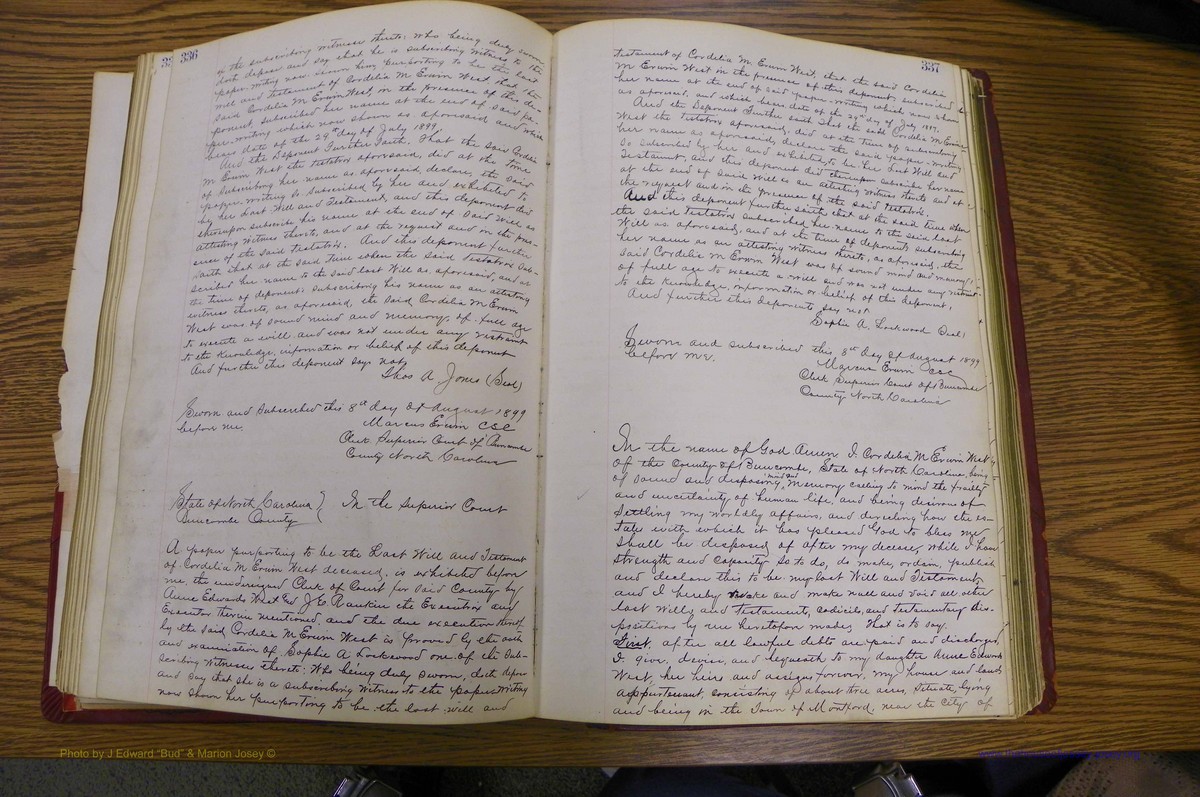 336
of the subscribing witnesses thereto: who being duly sworn
doth depose and say that he is subscribing witness to the
paper-writing now shown him, purporting to be the last
will and testament of Cordelia M Erwin West that the
said Cordelia M Erwin West, in the presence of this de-
ponent, subscribed her name at the end of said pa-
per-writing which now shown as aforesaid and which
bears date of the 29th day of July 1899
And the Deponent Further Saith, That the said Cordelia
M Erwin West the testatrix aforesaid, did at the time
of subscribing her name as aforesaid, declare, the said
paper-writing so subscribed by her and exhibited to
by her Last Will and Testament, and this deponent did
thereupon subscribe his name at the end of Said Will as
attesting witness thereto, and at the request and in the pres-
ence of the said testatrix. And this deponent further
saith that at the said time when the said Testatrix Sub-
scribed her name to the said last Will as aforesaid, and at
the time of deponent; subscribing his name as an attesting
witness thereto, as aforesaid, the said Cordelia M Erwin
West was of sound mind and memory, of full age
to execute a will and was not under any restraint
to the knowledge, information or belief of this deponent
And further this deponent says not,
Thos A Jones (Seal)
Sworn and Subscribed this 8th day of August 1899
before me.
Marcus Erwin CSC
Clerk Superior Court of Buncombe
County North Carolina
State of North Carolina } In the Superior Court
Buncombe County
A paper purporting to be the Last Will and Testament
of Cordelia M Erwin West deceased, is exhibited before
me, the undersigned Clerk of Court for said County by
Anne Edwards West and J.E. Rankin the Executrix and
Executor therein mentioned, and the due execution thereof
by the said Cordelia M Erwin West is proved by the oath
and examination of Sophie A Lockwood one of the Sub-
scribing Witnesses thereto: Who being duly sworn, doth depose
and say that she is a subscribing Witness to the paper writing
now shown her purporting to be the last will and
337
testament of Cordelia M. Erwin West, that the said Cordelia
M Erwin West in the presence of this deponent, subscribed
her name at the end of said paper-writing which now shown
as aforesaid, and which bears date of the 29th day of July 1899.
And the Deponent Further saith that the said Cordelia M Erwin
West the Testatrix aforesaid, did at the time of subscribing
her name as aforesaid, declare the said paper-writing
so subscribed by her and exhibited, to be her Last Will and
Testament, and this deponent did thereupon subscribe her name
at the end of said Will as an attesting witness thereto and at
the request and in the presence of the said testatrix.
And this deponent further saith that at the said time when
the said Testatrix subscribed her name to the said last
Will as aforesaid, and at the time of deponents subscribing
her name as an attesting witness thereto, as aforesaid, the
said Cordelia M Erwin West was of sound mind and memory,
of full age to execute a will and was not under any restraint
to the knowledge, information or belief of this deponent,
And further this deponent say not
Sophie A. Lockwood Seal
Sworn and subscribed this 8th day of August 1899
before me.
Marcus Erwin CSC
Clerk Superior Court of Buncombe
County North Carolina
In the name of God Amen I. Cordelia M Erwin West
of the County of Buncombe, State of North Carolina, being
of sound and disposing mind and memory calling to mind the frailty
and uncertainty of human life, and being desirous of
settling my worldly affairs, and directing how the es-
tate with which it has pleased God to bless me
shall be disposed of after my decease, while I have
strength and capacity so to do, do make, ordain, publish
and declare this to be my last Will and Testament,
and I hereby revoke and make null and void all other
last wills, and Testaments, codicils, and testamentary dis-
positions by me heretofore made, That is to say.
First, after all lawful debts are paid and discharged
I give, devise, and bequeath to my daughter Anne Edwards
West, her heirs and assigns forever, my house and lands
appurtenant, consisting of about three acres, situate, lying
and being in the Town of Montford, near the City of
Photo by J Edward "Bud" & Marion Josey ©